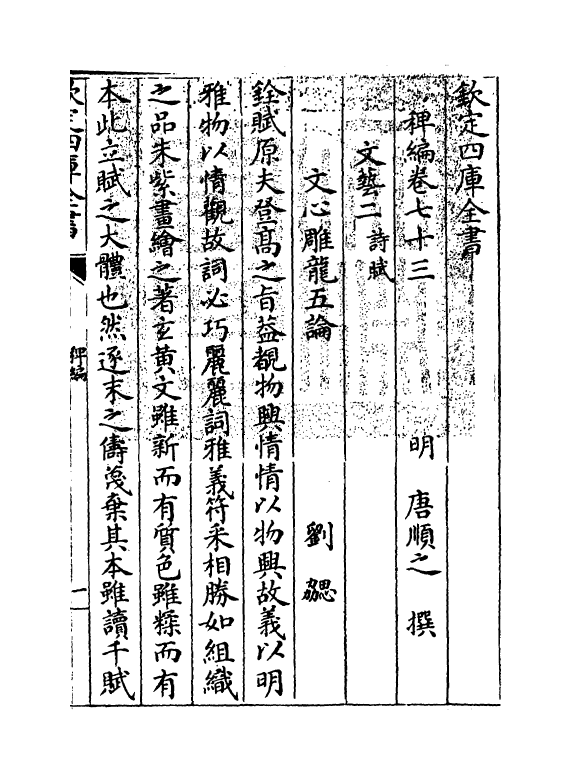 欽定四庫全書
稗編卷七十三　明　唐順之　撰
文藝二　詩賦
文心雕龍五論　劉勰
銓賦原夫登髙之旨葢覩物興情情以物興故義以明
雅物以情觀故詞必巧麗麗詞雅義符采相勝如組織
之品朱紫畫繪之著玄黄文雖新而有質色雖糅而有
本此立賦之大體也然逐末之儔蔑棄其本雖讀千賦
欽定四庫全書
稗編
一